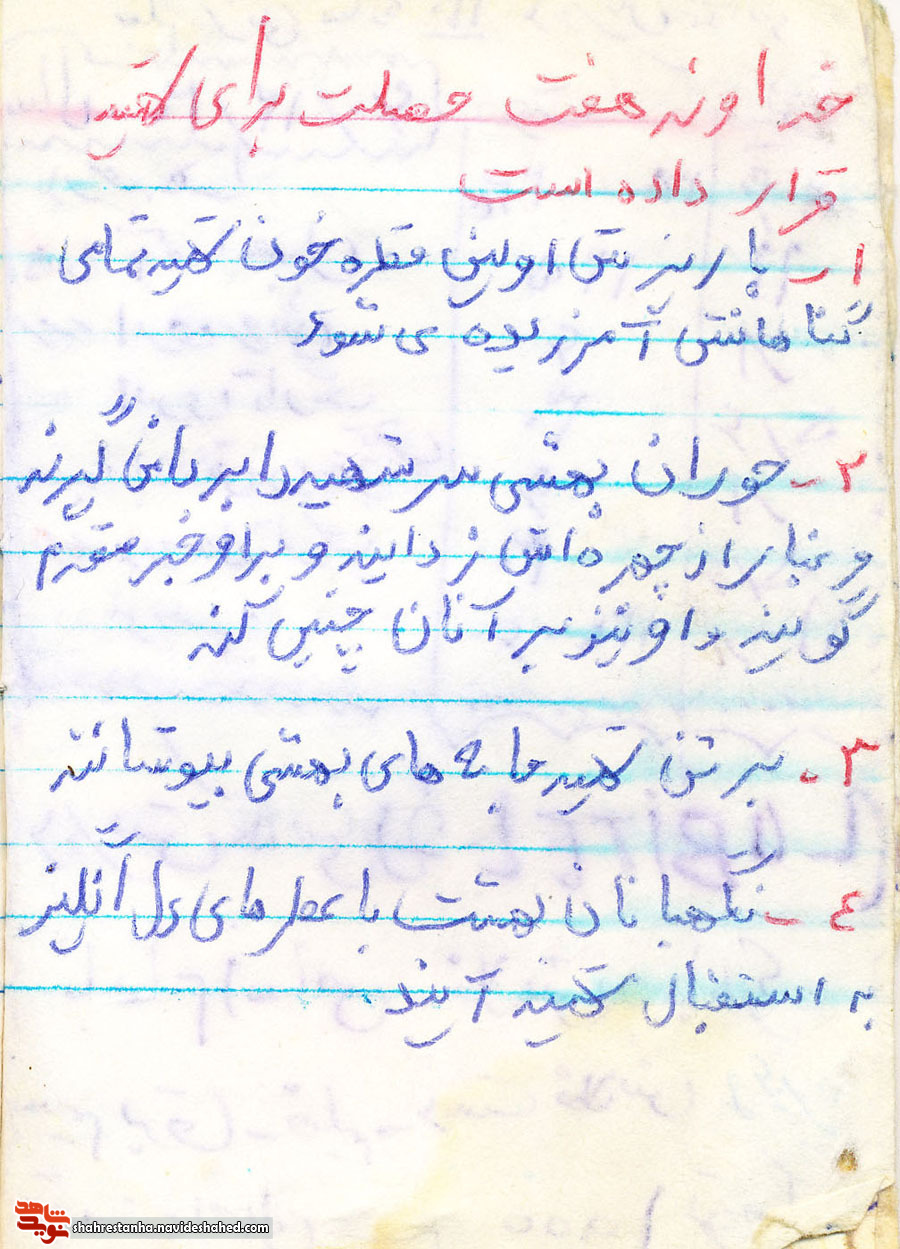 خداوند هفت خصلت برای شهید
قرار داده است
۱ـ با ریزش اولین قطره خون شهید تمامی
گناهانش آمرزیده می شود
۲ـ حوران بهشتی سر شهید را بر دامن گیرند
و غبار از چهره اش زدایند و بر او خیر مقدم
گویند و او نیز بر آنان چنین کند
۳ـ بر تن شهید جامه های بهشتی بپوشانند
٤ـ نگهبانان بهشت با عطرهای دل انگیز
به استقبال شهید آیند
شاهد
نوید
shahrestanha.navideshahed.com